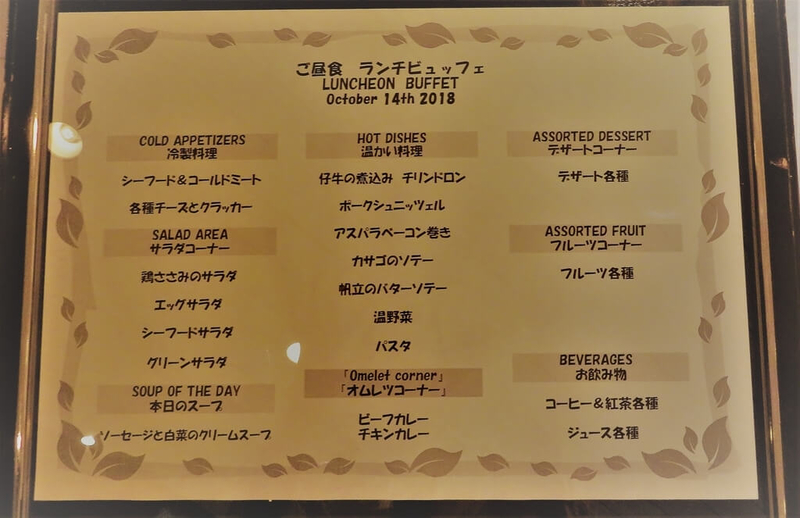 ご昼食 ランチビュッフェ
LUNCHEON BUFFET
October 14th 2018
COLD APPETIZERS
冷製料理
シーフード&コールドミート
各種チーズとクラッカー
SALAD AREA
サラダコーナー
鶏ささみのサラダ
エッグサラダ
シーフードサラダ
グリーンサラダ
SOUP OF THE DAY
本日のスープ
ソーセージと白菜のクリームスープ
HOT DISHES
温かい料理
仔牛の煮込み チリンドロン
ポークシュニッツェル
アスパラベーコン巻き
カサゴのソテー
帆立のバターソテー
温野菜
パスタ
「Omelet corner」
「オムレツコーナー」
ビーフカレー
チキンカレー
ASSORTED DESSERT
デザートコーナー
デザート各種
ASSORTED FRUIT
フルーツコーナー
フルーツ各種
BEVERAGES
お飲み物
コーヒー&紅茶各種
ジュース各種